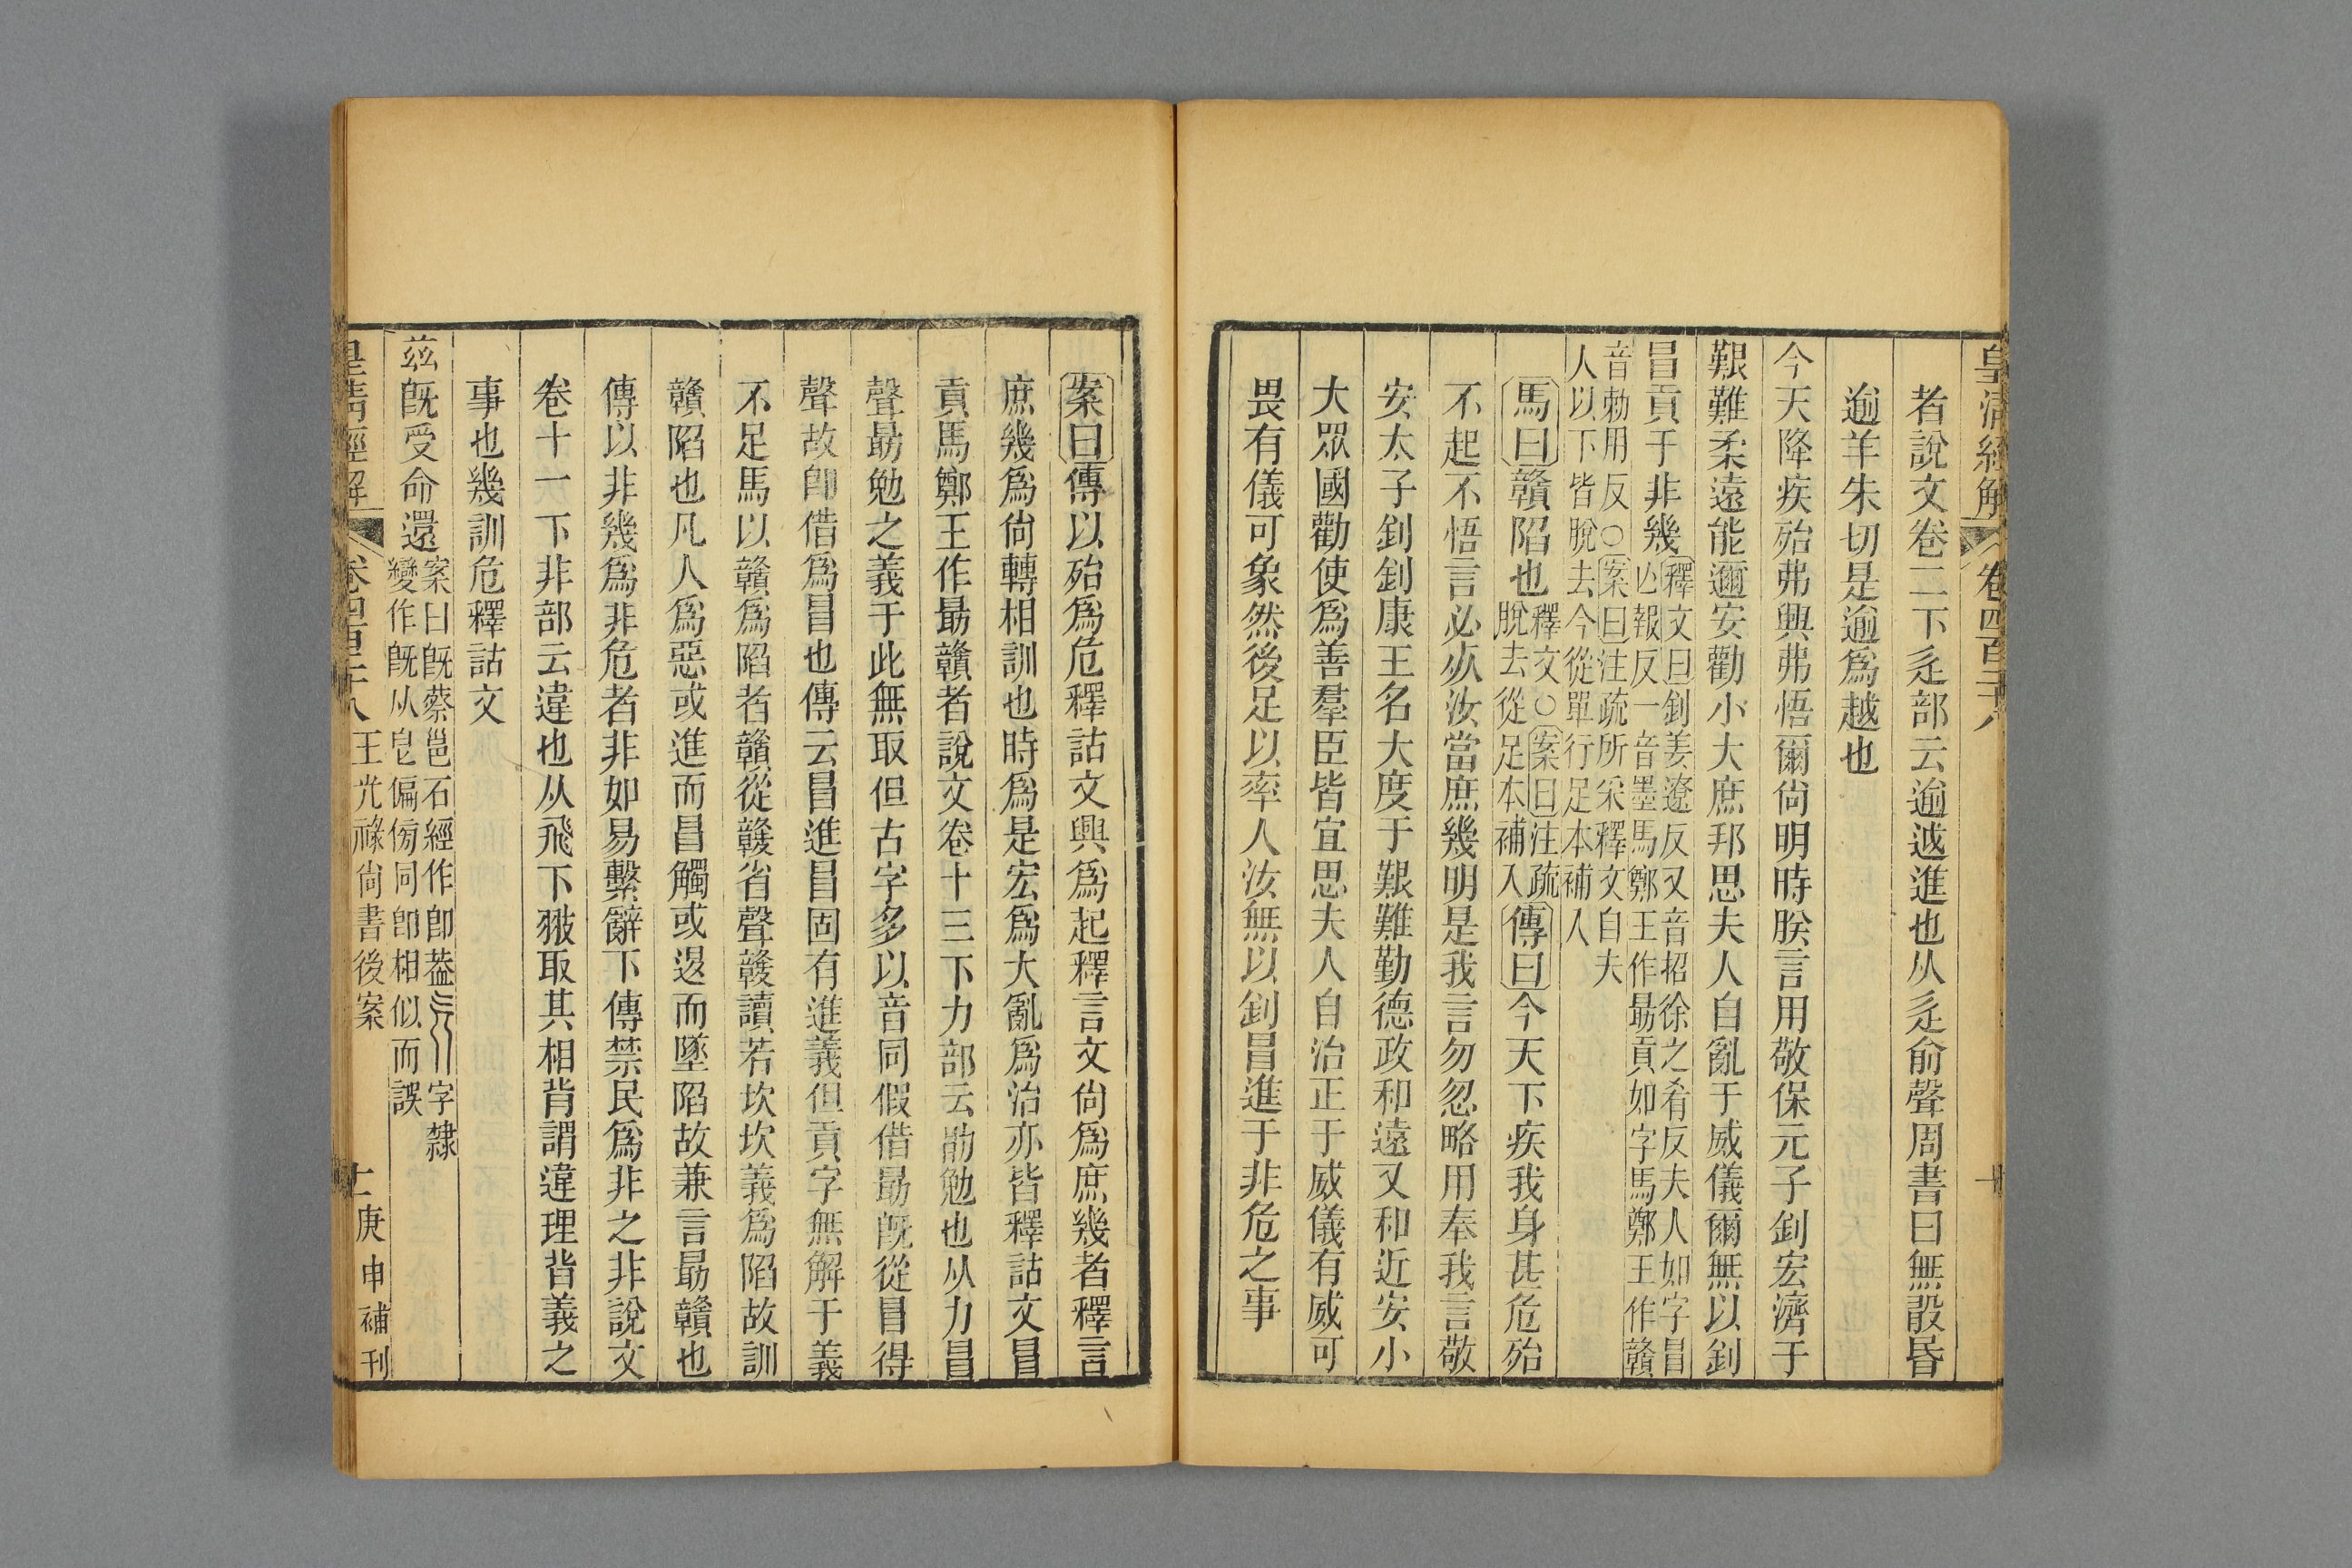 皇清經解 卷四百二十八 十
者說文卷二下辵部云逾越進也从辵俞聲周書曰無敢昬
逾羊朱切是逾爲越也
今天降疾殆弗興弗悟爾尙明時朕言用敬保元子釗宏濟于
艱難柔遠能邇安勸小大庶邦思夫人自亂于威儀爾無以釗
冒貢于非幾釋文曰釗姜遼反又音招徐之肴反夫人如字冒
亡報反一音墨馬鄭王作勖貢如字馬鄭王作贛
音勑用反○案曰注疏所采釋文自夫
人以下皆脫去今從單行足本補人
馬曰贛陷也釋文○案曰注疏
脫去從足本補入傳曰今天下疾我身甚危殆
不起不悟言必死汝當庶幾明是我言勿忽略用奉我言敬
安太子釗釗康王名大度于艱難勤德政和遠又和近安小
大眾國勸使爲善羣臣皆宜思夫人自治正于威儀有威可
畏有儀可象然後足以率人汝無以釗冒進于非危之事
案曰傳以殆爲危釋詁文興爲起釋言文尙爲庶幾者釋言
庶幾爲尙轉相訓也時爲是宏爲大亂爲治亦皆釋詁文冒
貢馬鄭王作勖贛者說文卷十三下力部云勖勉也从力冒
聲勖勉之義于此無取但古字多以音同假借勖旣從冒得
聲故卽借爲冒也傳云冒進冒固有進義但貢字無解于義
不足馬以贛爲陷者贛從贛省聲贛讀若坎坎義爲陷故訓
贛陷也凡人爲惡或進而冒觸或退而墜陷故兼言勖贛也
傳以非幾爲非危者非如易繫辭下傳禁民爲非之非說文
卷十一下非部云違也从飛下翄取其相背謂違理背義之
事也幾訓危釋詁文
茲旣受命還案曰旣蔡邕石經作卽葢字隸
變作旣从皀偏傍同卽相似而誤
皇清經解 卷四百二十八 王光祿尙書後案 十一 庚申補刊